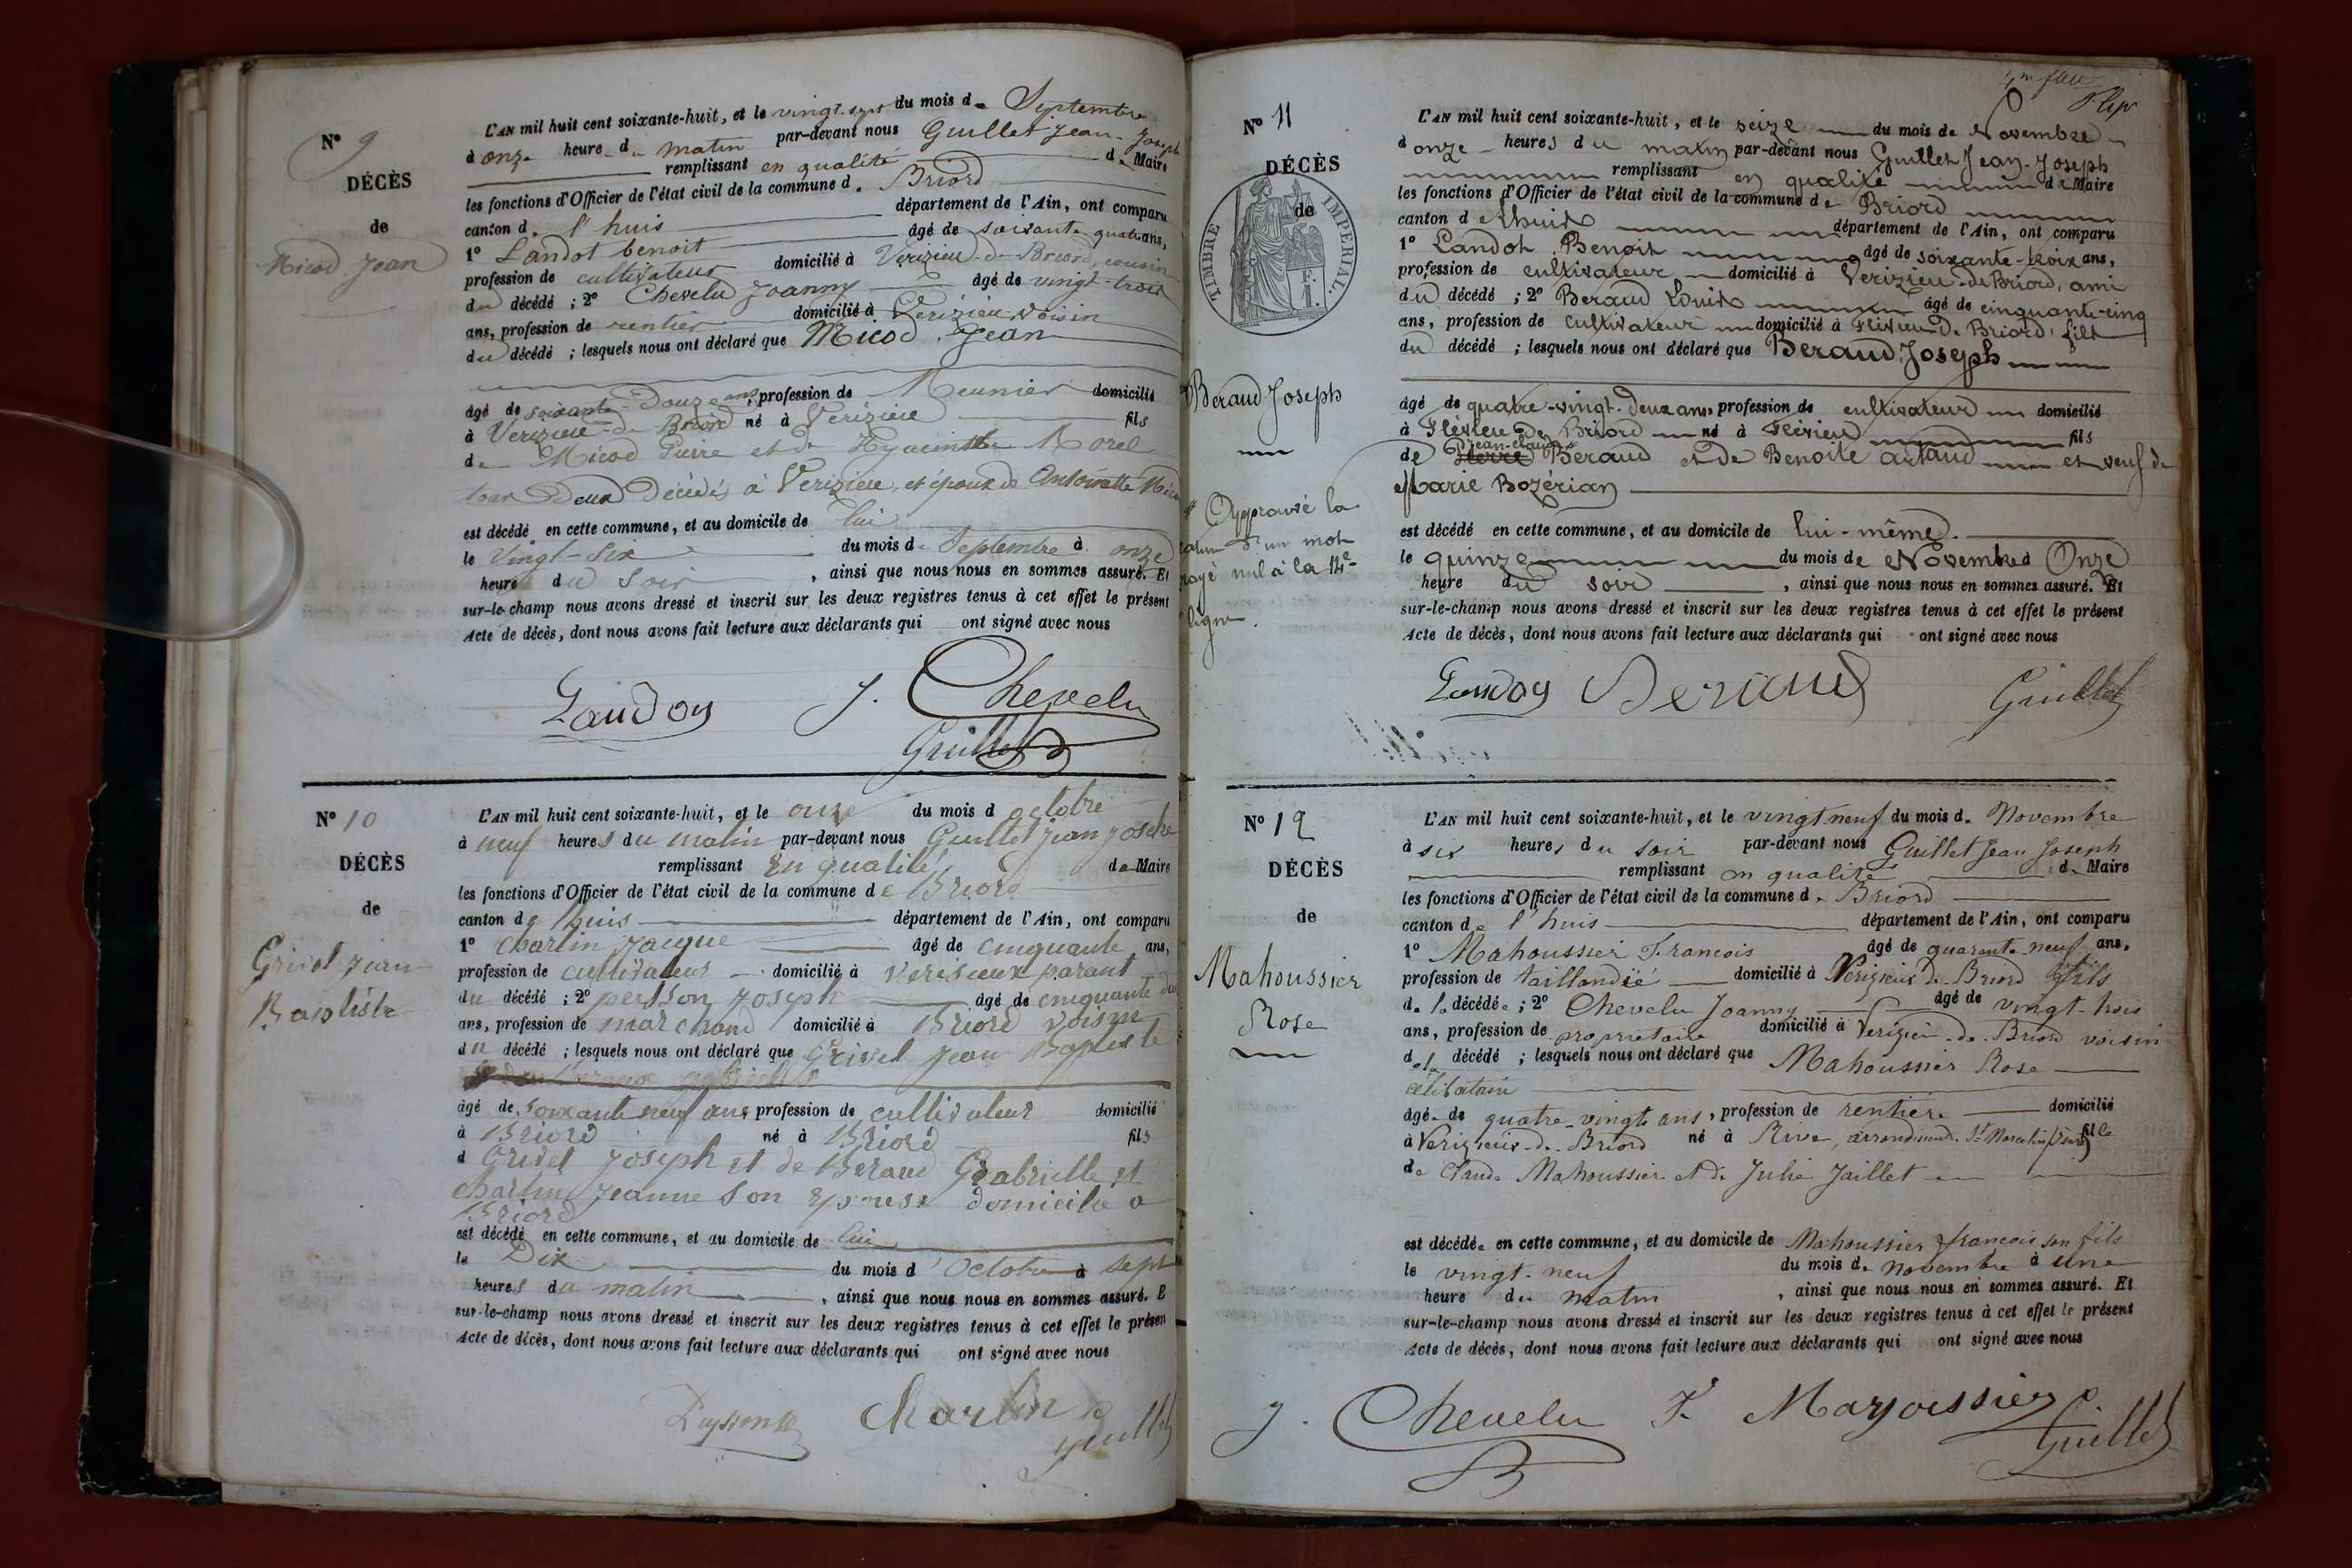 N° 9
DÉCÈS
de
Micod Jean
L'AN mil huit cent soixante-huit, et le vingt-sept du mois de Septembre
à onze heure du matin par-devant nous Guillet Jean-Joseph
remplissant en qualité de Maire
les fonctions d'Officier de l'état civil de la commune de Briord
canton de l'huis département de l'Ain, ont comparu
1° Landot benoit âgé de soixante-quatre ans,
profession de cultivateur domicilié à Vérizieu-de-Briord, cousin
du décédé ; 2° Chevelu Joanny âgé de vingt-trois
ans, profession de rentier domicilié à Vérizieu, voisin
du décédé ; lesquels nous ont déclaré que Micod Jean
âgé de soixante-Douze ans, profession de Meunier domicilié
à Verizieu-de-Briord né à Verizieu fils
de Micod Pierre et de Hyacinthe Morel
tous Deux Décédés à Verizieu, et époux de Antoinette
est décédé en cette commune, et au domicile de lui
le vingt-six du mois de Septembre à onze
heure du soir, ainsi que nous nous en sommes assuré. Et
sur-le-champ nous avons dressé et inscrit sur les deux registres tenus à cet effet le présent
Acte de décès, dont nous avons fait lecture aux déclarants qui ont signé avec nous
Landoy J. Chevelu
Guillet
N° 10
DÉCÈS
de
Grivel Jean
Baptiste
L'AN mil huit cent soixante-huit, et le onze du mois d octobre
à neuf heures du matin par-devant nous Guillet Jean Josehe
remplissant En qualité de Maire
les fonctions d'Officier de l'état civil de la commune de Briord
canton de lhuis département de l'Ain, ont comparu
1° Charlin Jacque âgé de cinquante ans,
profession de cultivateur domicilié à verisieux parant
du décédé ; 2° Joseph âgé de cinquante
ans, profession de marchand domicilié à Briord voisin
du décédé ; lesquels nous ont déclaré que Grivel Jean Bapteste
âgé de soixante neuf ans, profession de cultivateur domicilié
à Briord né à Briord fils
d Grivel Joseph et de Beraud Gabrielle et
charlin Jeanne son Epouse domicilie a
Briord
est décédé en cette commune, et au domicile de lui
le Dix du mois d'Octobre à sept
heures du matin, ainsi que nous nous en sommes assuré. E
sur-le-champ nous avons dressé et inscrit sur les deux registres tenus à cet effet le présen
Acte de décès, dont nous avons fait lecture aux déclarants qui ont signé avec nous
Charlin
Guillet
N° 11
DÉCÈS
de
TIMBRE IMPERIAL.
Beraud Joseph
Approuvé la
d'un mot
rayé nul à la 14e
ligne.
L'AN mil huit cent soixante-huit, et le seize du mois de Novembre
à onze heures du matin par-devant nous Guillet Jean-Joseph
remplissant en qualité de Maire
les fonctions d'Officier de l'état civil de la commune de Briord
canton de Lhuis département de l'Ain, ont comparu
1° Landot Benoit âgé de soixante-trois ans,
profession de cultivateur domicilié à Verizieu-de Briord, ami
du décédé ; 2° Beraud Louis âgé de cinquante-cinq
ans, profession de cultivateur domicilié à Flévieu-De Briord, fils
du décédé ; lesquels nous ont déclaré que Beraud Joseph
âgé de quatre-vingt-deux ans, profession de cultivateur domicilié
à Flévieu De Briord né à Flévieu fils
Jean-claude
de Pierre Beraud et de Benoite artaud et veuf de
Marie Bozérian
est décédé en cette commune, et au domicile de lui-même.
le quinze du mois de Novembre à Onze
heure du soir, ainsi que nous nous en sommes assuré. Et
sur-le-champ nous avons dressé et inscrit sur les deux registres tenus à cet effet le présent
Acte de décès, dont nous avons fait lecture aux déclarants qui ont signé avec nous
Landoy Beraud Guillet
N° 12
DÉCÈS
de
Mahoussier
Rose
L'AN mil huit cent soixante-huit, et le vingt neuf du mois de Novembre
à six heures du soir par-devant nous Guillet Jean Joseph
remplissant en qualité de Maire
les fonctions d'Officier de l'état civil de la commune de Briord
canton de l'huis département de l'Ain, ont comparu
1° Mahoussier Francois âgé de quarante neuf ans,
profession de taillandié domicilié à Verizieux de Briord fils
de la décédée ; 2° Chevelu Joanny âgé de vingt-trois
ans, profession de proprietaire domicilié à Verizieu-de-Briord voisin
de la décédé ; lesquels nous ont déclaré que Mahoussier Rose
célibataire
âgée de quatre-vingt ans, profession de rentière domicilié
à Verizieux-de-Briord né à Rive, arrondissement St Marcelin (Isère) fille
de Claude Mahoussier et de Julie Jaillet
est décédée en cette commune, et au domicile de Mahoussier francois son fils
le vingt-neuf du mois de novembre à une
heure du matin, ainsi que nous nous en sommes assuré. Et
sur-le-champ nous avons dressé et inscrit sur les deux registres tenus à cet effet le présent
Acte de décès, dont nous avons fait lecture aux déclarants qui ont signé avec nous
J. Chevelu F. Mayoussier
Guillet